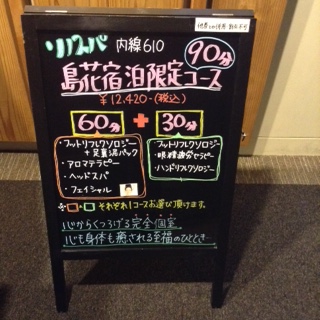 リバスパ 内線610
90分
島花宿泊限定コース
¥12,420-(税込)
60分 + 30分
・フットリフレクソロジー
+足裏泥パック
・アロマテラピー
・ヘッドスパ
・フェイシャル
・フットリフレクソロジー
・眼精疲労セラピー
・ハンドリフレクソロジー
それぞれ1コースお選び頂けます。
心からくつろげる完全個室
心も身体も癒される至福のひととき…